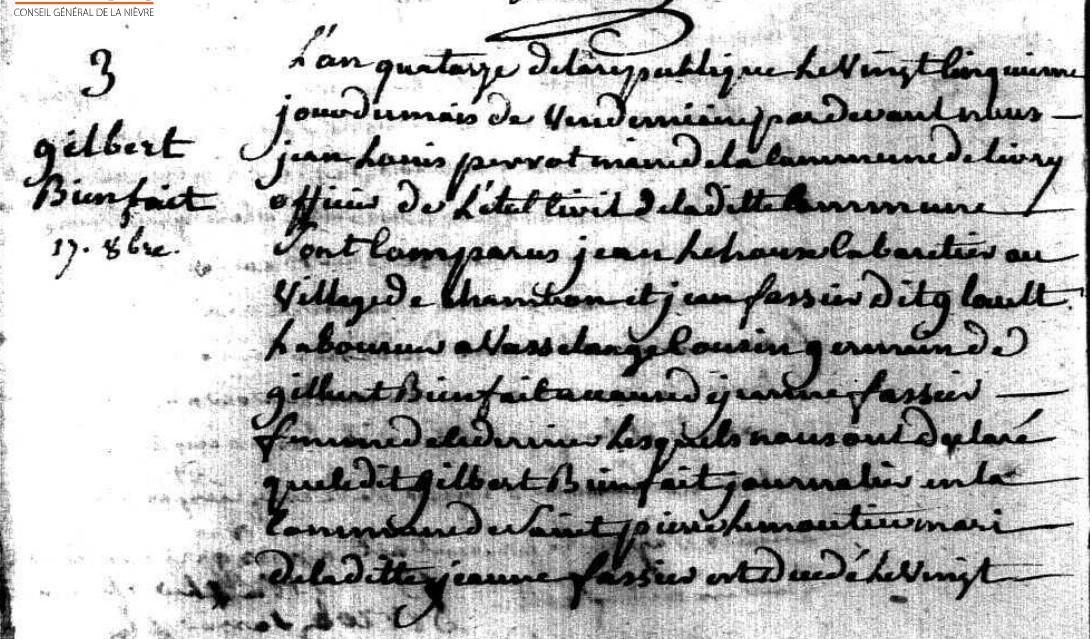 CONSEIL GÉNÉRAL DE LA NIÈVRE
3
gilbert
Bienfait
17. 8bre.
L'an quatorze de la republique le Vingt Cinquieme
jour du mois de Vendemiaire par devant nous
jean Louis perrot maire de la Commune de livry
officier de L'etat Civil de la ditte Commune
Sont Comparus jean Cabaretier au
Village de Chambon et jean fassier dit
Laboureur a Cousin germain de
gilbert Bienfait a cause de jeanne fassier
femme de ce dernier Lesquels nous ont declaré
que le dit gilbert Bienfait journalier en la
Commune de Saint pierre le moutier mari
de la ditte jeanne fassier est decedé le Vingt